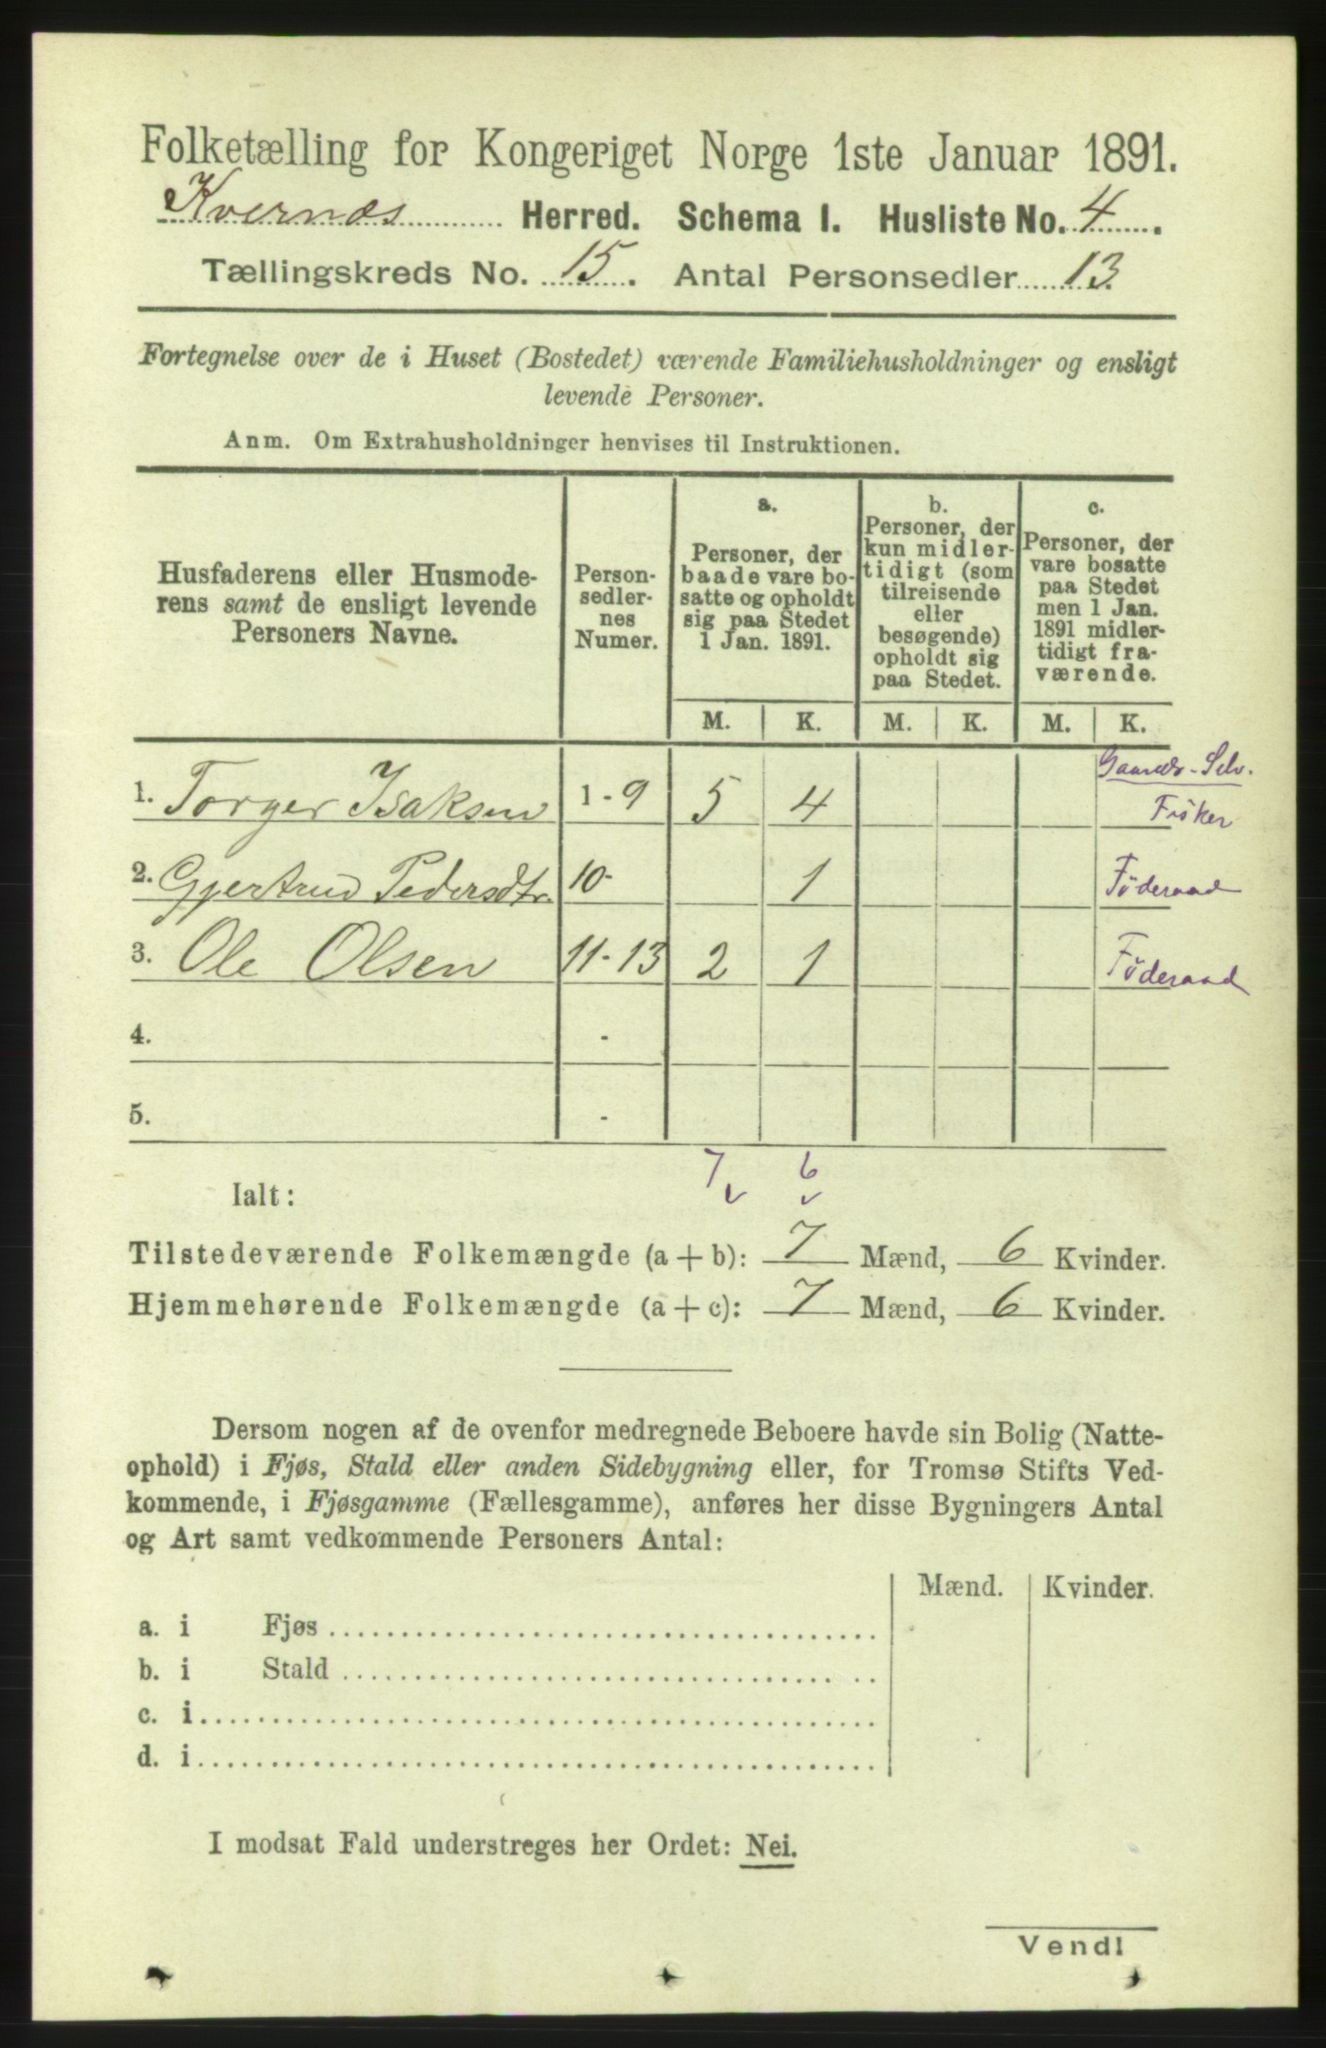 Folketælling for Kongeriget Norge 1ste Januar 1891.
Kvernæs Herred. Schema I. Husliste No. 4.
Tællingskreds No. 15. Antal Personsedler 13.
Fortegnelse over de i Huset (Bostedet) værende Familiehusholdninger og ensligt
levende Personer.
Anm. Om Extrahusholdninger henvises til Instruktionen.
Husfaderens eller Husmode-
rens samt de ensligt levende
Personers Navne.
Person-
sedler-
nes
Numer.
a.
Personer, der
baade vare bo-
satte og opholdt
sig paa Stedet
1 Jan. 1891.
b.
Personer, der
kun midler-
tidigt (som
tilreisende
eller
besøgende)
opholdt sig
paa Stedet.
c.
Personer, der
vare bosatte
paa Stedet
men 1 Jan.
1891 midler-
tidigt fra-
værende.
M. K. M. K. M. K.
1. Torger Isaksen 1-9 5 4 Gaardbr-Selv.
Fisker
2. Gjertrud Pedersdtr. 10- 1 Föderaad
3. Ole Olsen 11-13 2 1 Föderaad
4. -
5. -
7 6
Ialt:
Tilstedeværende Folkemængde (a + b): 7 Mænd, 6 Kvinder.
Hjemmehørende Folkemængde (a + c): 7 Mænd, 6 Kvinder.
Dersom nogen af de ovenfor medregnede Beboere havde sin Bolig (Natte-
ophold) i Fjøs, Stald eller anden Sidebygning eller, for Tromsø Stifts Ved-
kommende, i Fjøsgamme (Fællesgamme), anføres her disse Bygningers Antal
og Art samt vedkommende Personers Antal:
Mænd. Kvinder.
a. i Fjøs
b. i Stald
c. i
d. i
I modsat Fald understreges her Ordet: Nei.
Vend!